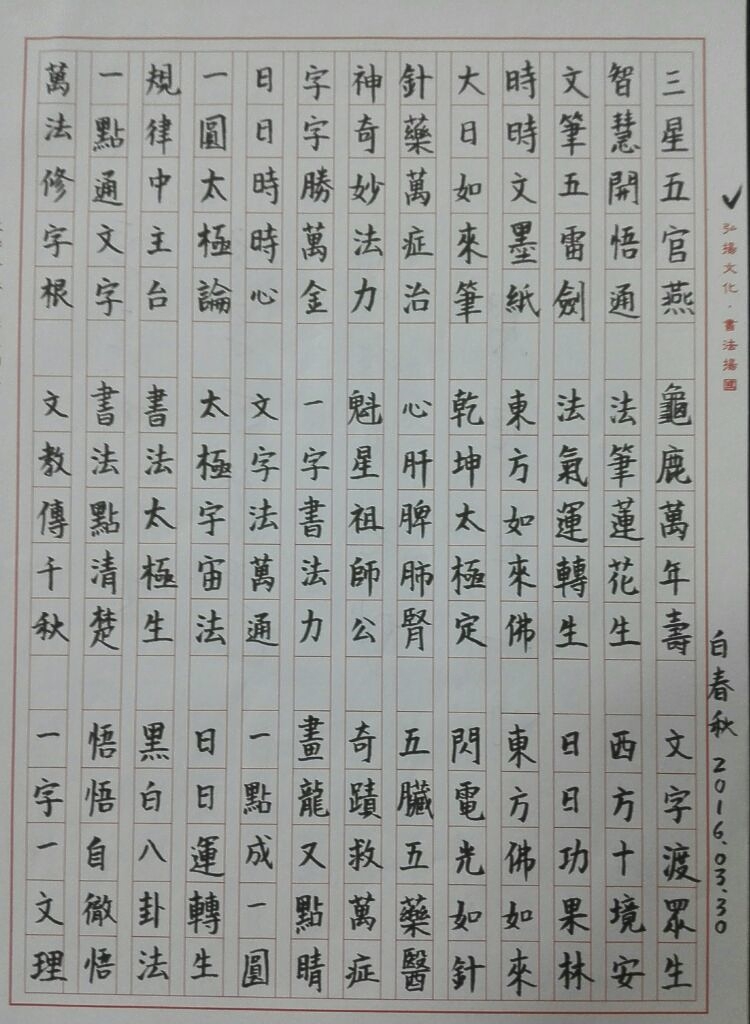 弘揚文化．書法揚國
白春秋 2016.03.30
三星五官燕 龜鹿萬年壽 文字渡眾生
智慧開悟通 法筆蓮花生 西方十境安
文筆五雷劍 法氣運轉生 日日功果林
時時文墨紙 東方如來佛 東方佛如來
大日如來筆 乾坤太極定 閃電光如針
針藥萬症治 心肝脾肺腎 五臟五藥醫
神奇妙法力 魁星祖師公 奇蹟救萬症
字字勝萬金 一字書法力 畫龍又點睛
日日時時心 文字法萬通 一點成一圓
一圓太極論 太極字宙法 日日運轉生
規律中主台 書法太極生 黑白八卦法
一點通文字 書法點清楚 悟悟自徹悟
萬法修字根 文教傳千秋 一字一文理